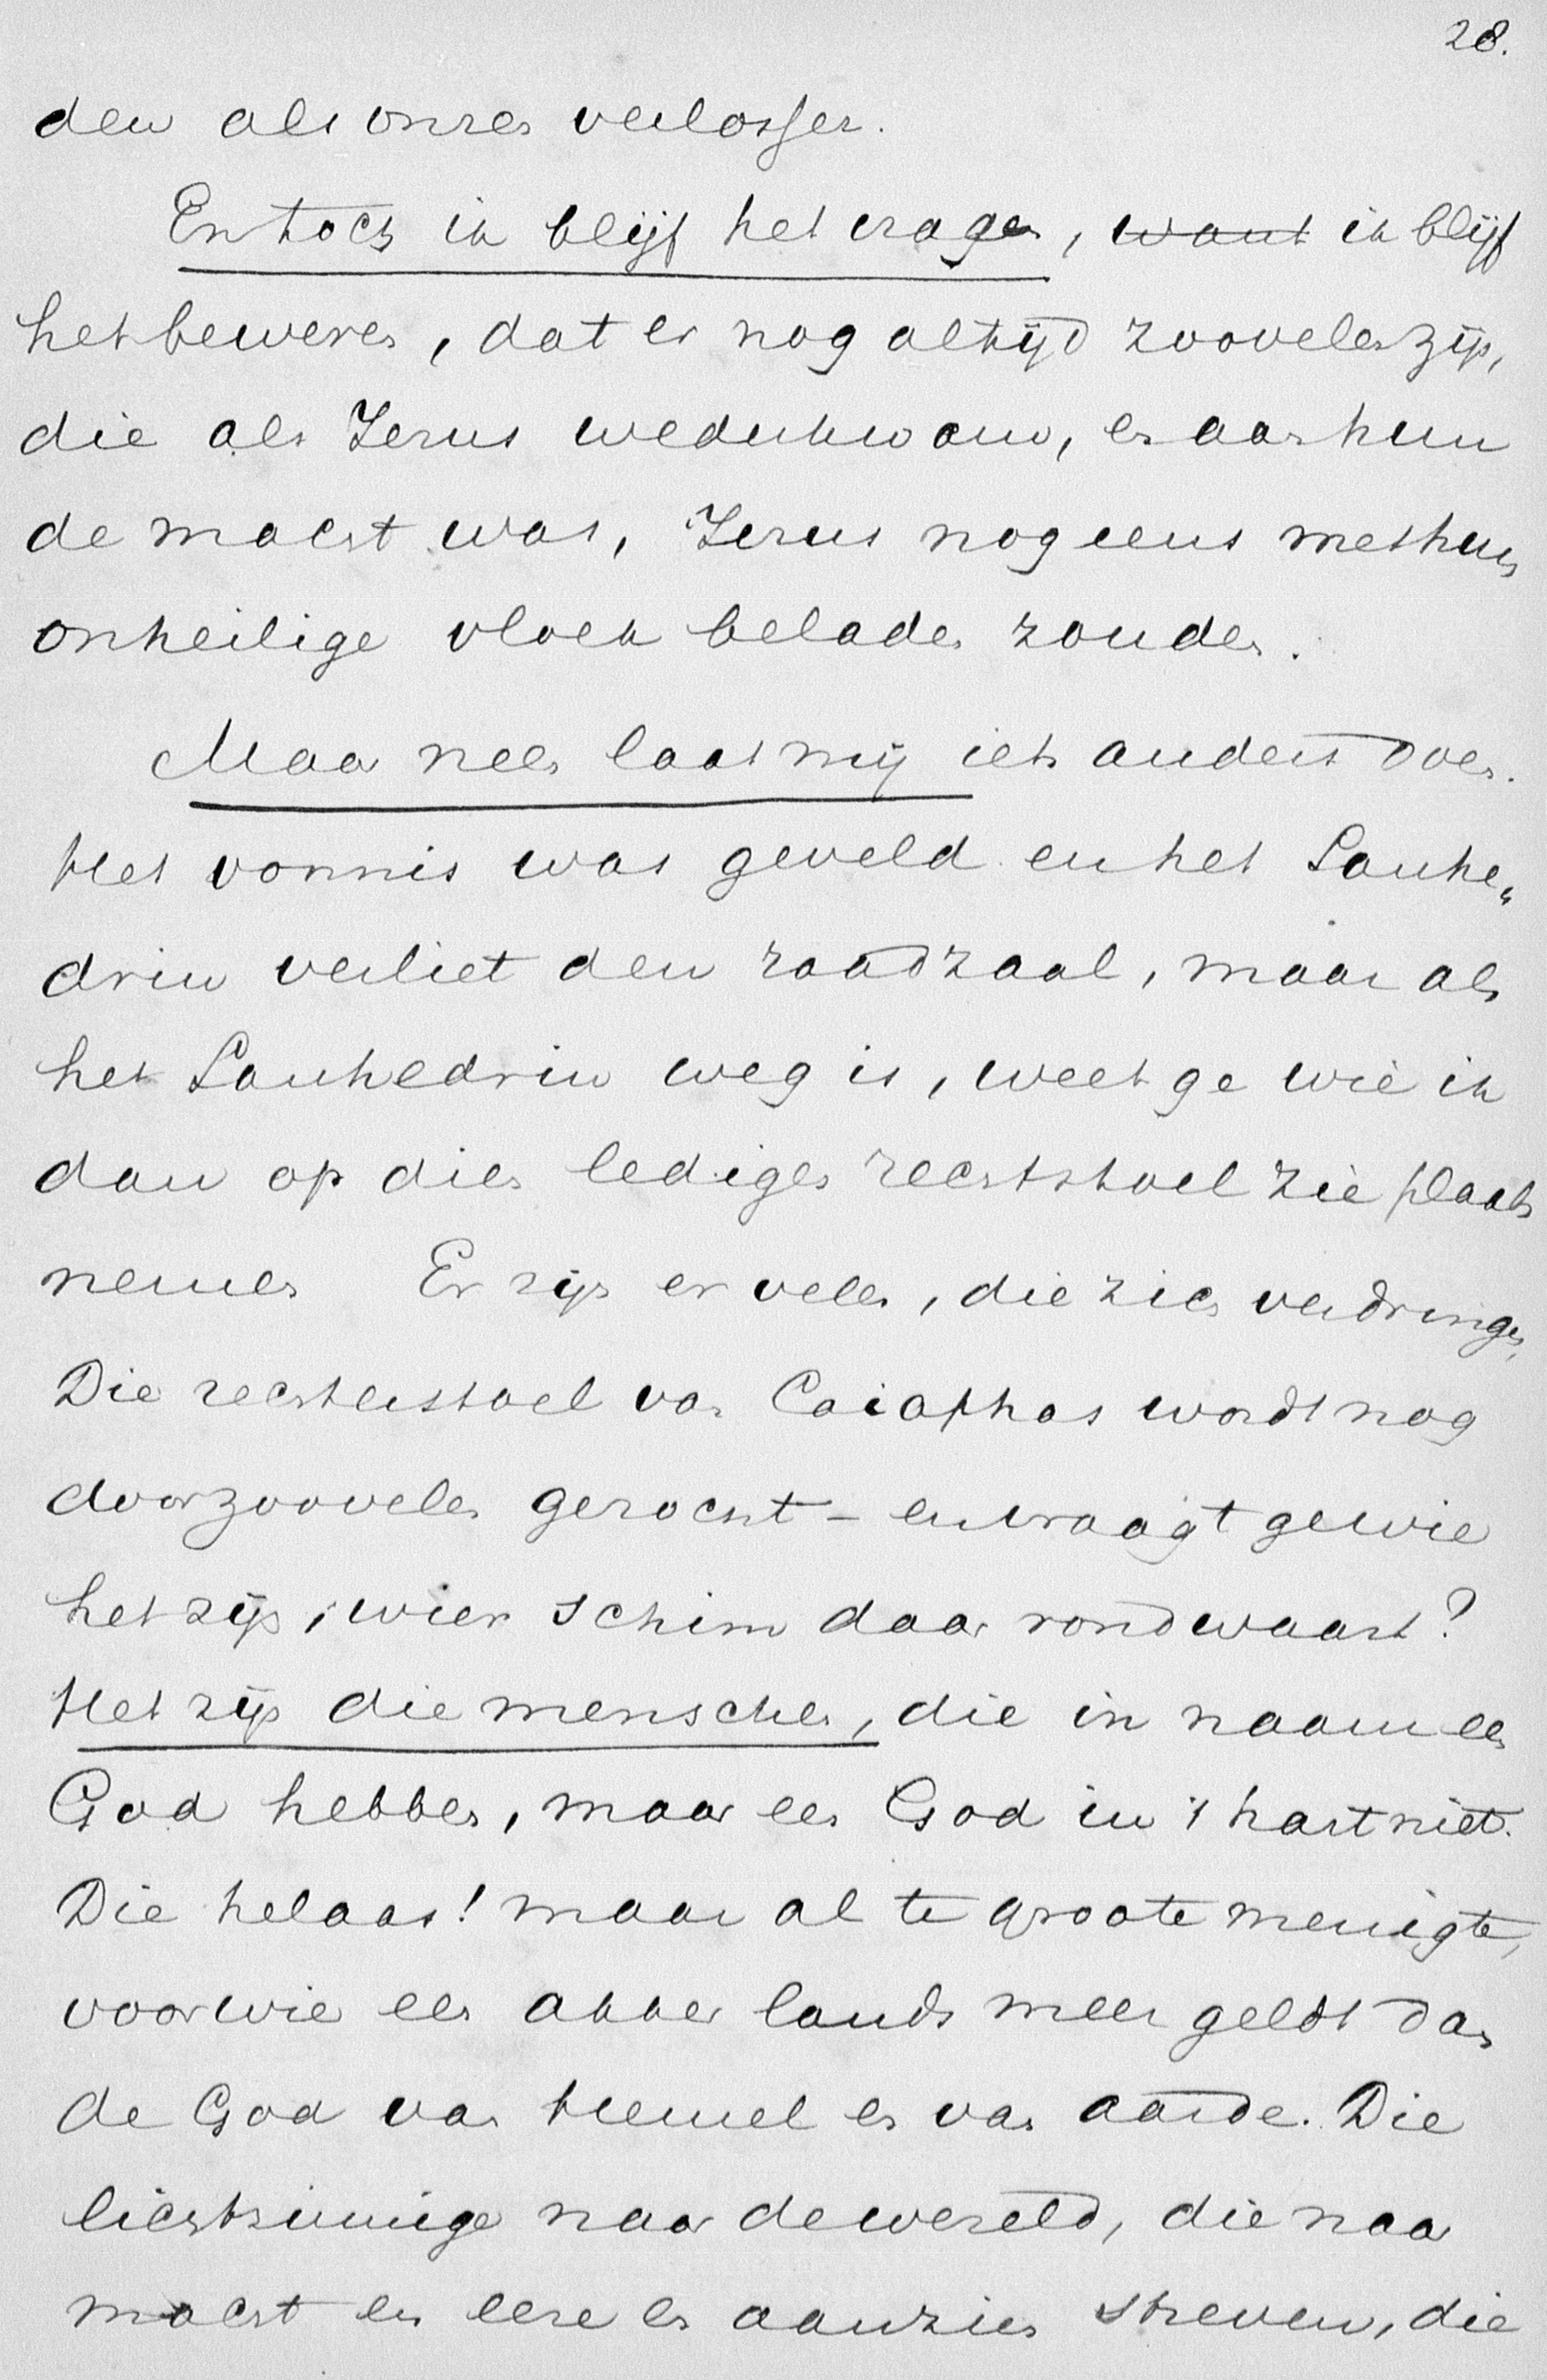 28.
den als onzen verlosser.
En toch ik blijf het vragen, want ik blijf
het beweren, dat er nog altijd zoovelen zijn,
die als Jezus wederkwam, en aan hun
de macht was, Jezus nog eens met hun
onheilige vloek beladen zouden.
Maar neen laat mij iets anders doen.
Het vonnis was geveld en het Sanhe„
drin verliet den raadzaal, maar als
het Sanhedrin weg is, weet ge wie ik
dan op dien ledigen rechtstoel zie plaats
nemen Er zijn er velen, die zich verdringen,
Die rechterstoel van Caiaphas wordt nog
door zoovelen gezocht – en vraagt ge wie
het zijn, wier schim daar rondwaart?
Het zijn die menschen, die in naam een
God hebben, maar een God in 't hart niet.
Die helaas! maar al te groote menigte,
voor wie een akker lands meer geldt dan
de God van Hemel en van aarde. Die
lichtzinnige naar de wereld, die naar
macht en eere en aanzien streven, die